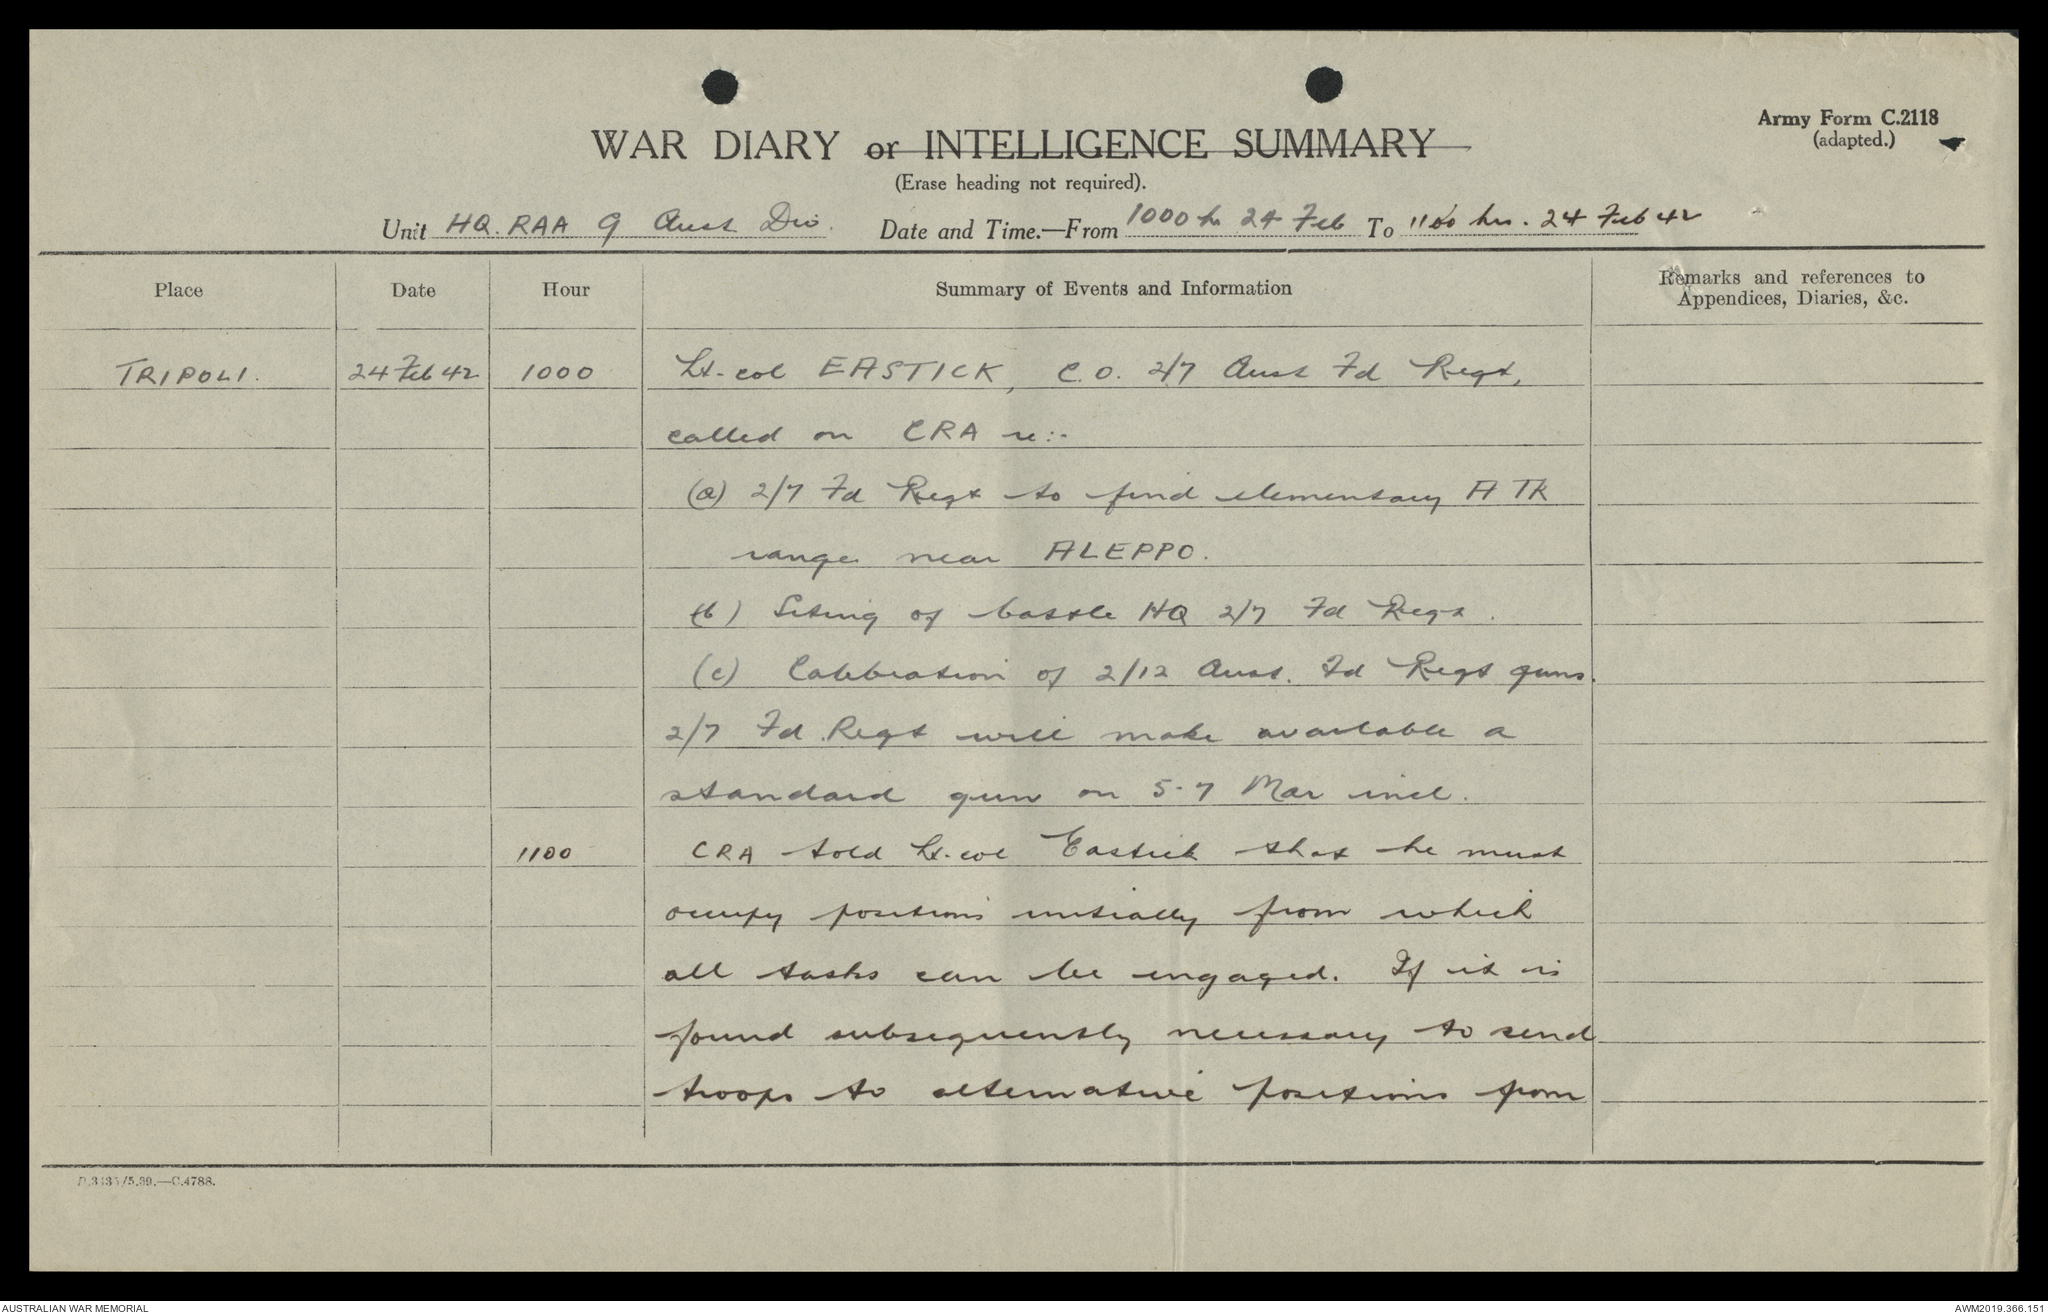 Army Form C.2118
(adapted.)
WAR DIARY or INTELLIGENCE SUMMARY
(Erase heading not required).
Unit HQ. RAA 9 Aust Div. Date and Time.—From 1000 hr 24 Feb To 1100 hrs. 24 Feb 42
Place Date Hour Summary of Events and Information Remarks and references to
Appendices, Diaries, &c.
TRIPOLI. 24 Feb 42 1000 Lt-col EASTICK, C.O. 2/7 Aust Fd Regt,
called on CRA re:-
(a) 2/7 Fd Regt to find elementary A TK
range near ALEPPO.
(b) Siting of battle HQ 2/7 Fd Regt.
(c) Calibration of 2/12 Aust. Fd Regt guns.
2/7 Fd Regt will make available a
standard gun on 5-7 Mar incl.
1100 CRA told Lt-col Eastick that he must
occupy positions initially from which
all tasks can be engaged. If it is
found subsequently necessary to send
troops to alternative positions from
/5.39.—C.4788.
AUSTRALIAN WAR MEMORIAL AWM2019.366.151